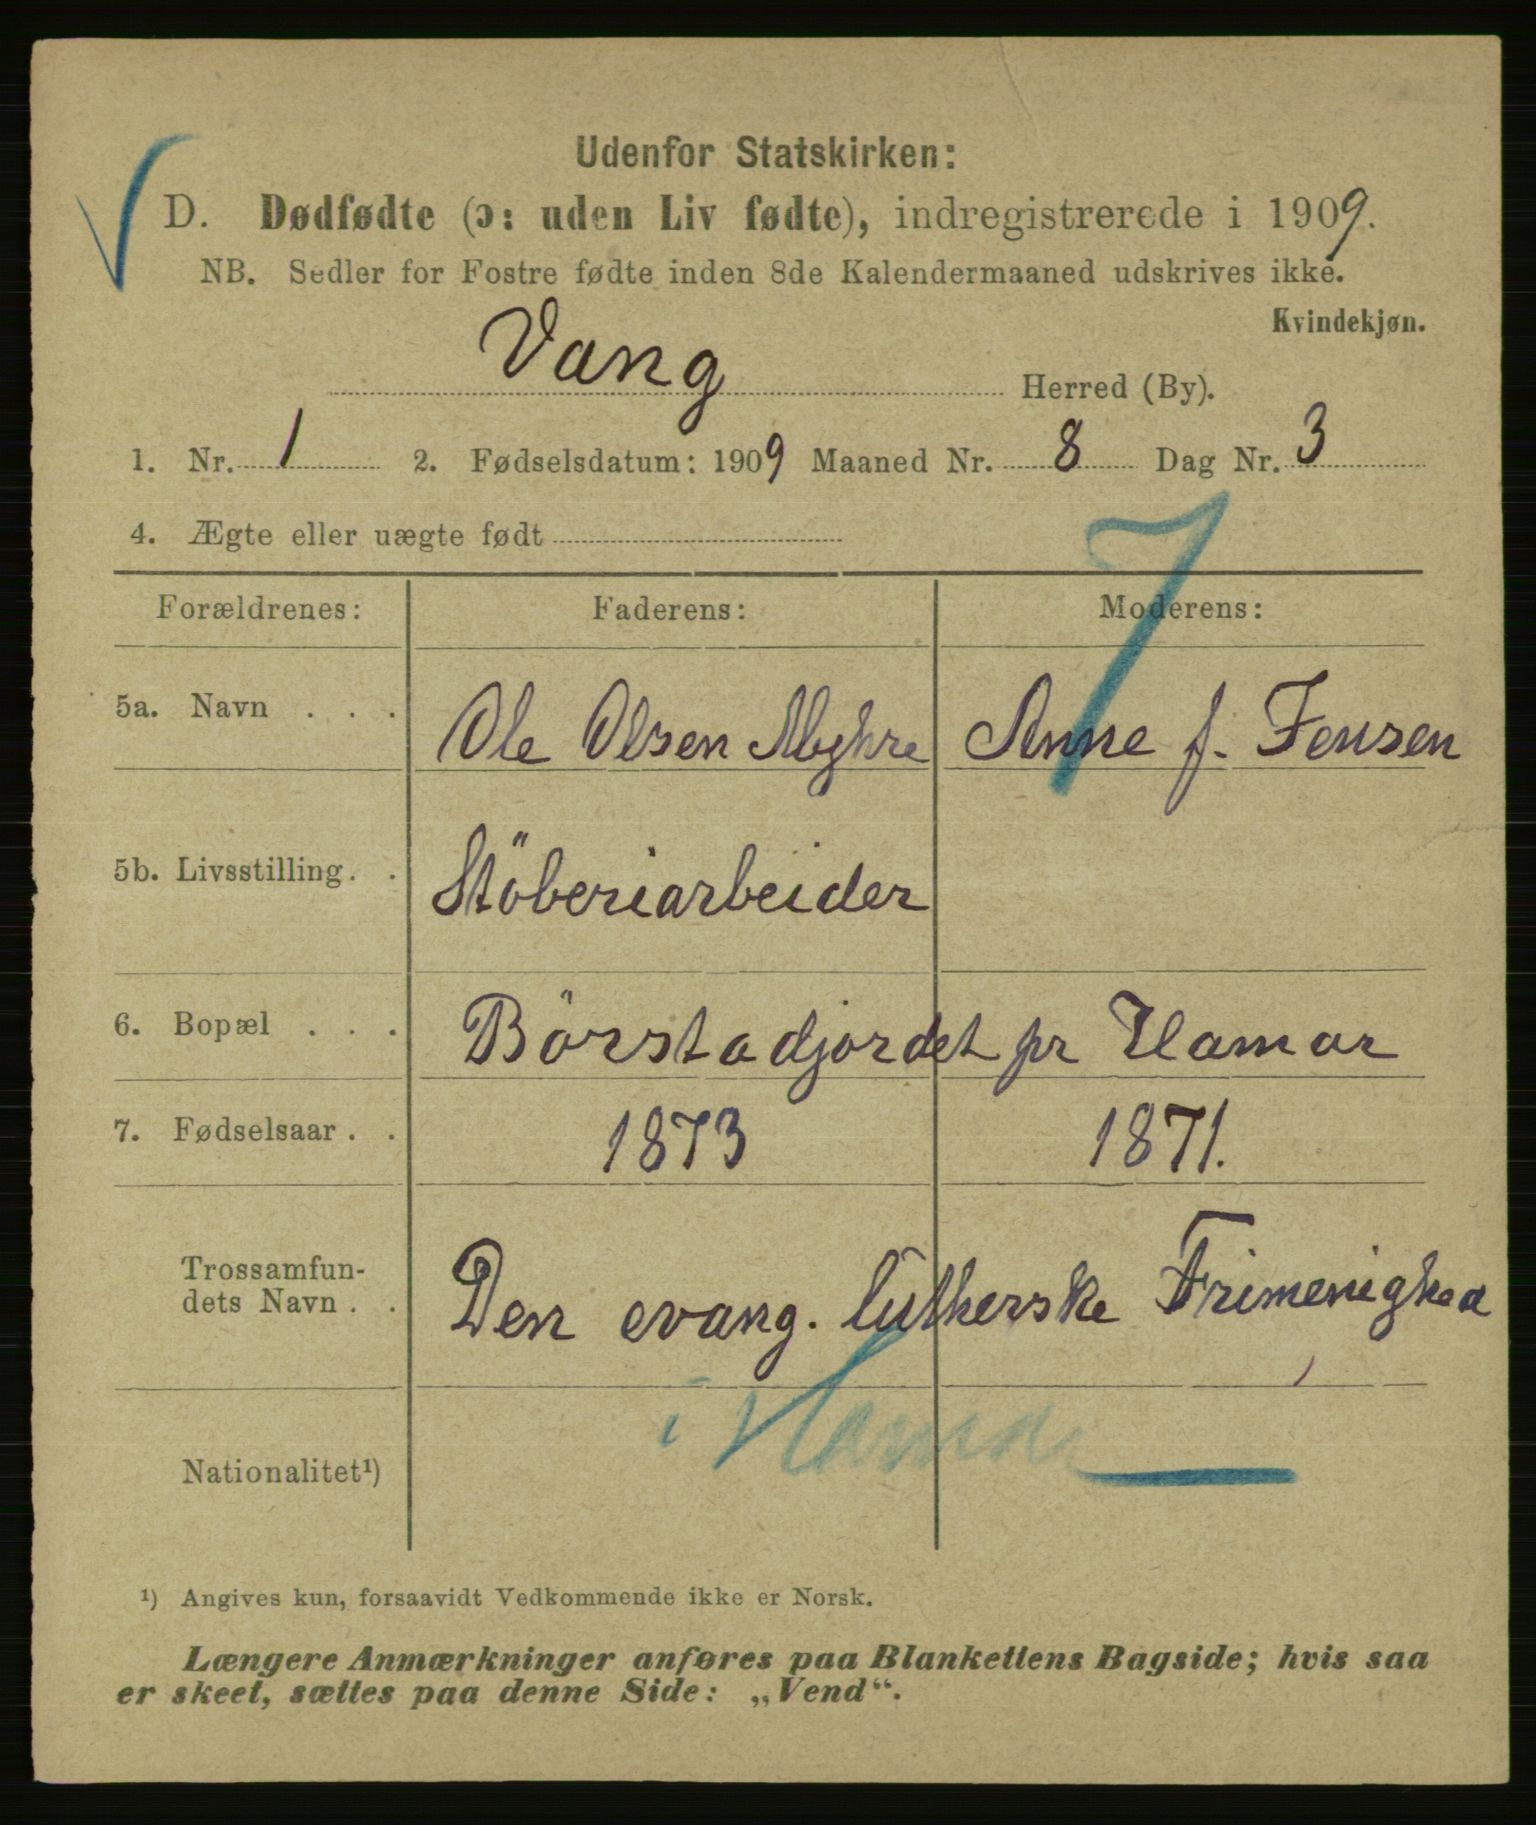 Udenfor Statskirken:
D. Dødfødte (ɔ: uden Liv fødte), indregistrerede i 1909.
NB. Sedler for Fostre fødte inden 8de Kalendermaaned udskrives ikke.
Kvindekjøn.
Vang Herred (By).
1. Nr. 1 2. Fødselsdatum: 1909 Maaned Nr. 8 Dag Nr. 3
4. Ægte eller uægte født
7
Forældrenes: Faderens: Moderens:
5a. Navn . . . Ole Olsen Myhre Anne f. Jensen
5b. Livsstilling . . Stöberiarbeider
6. Bopæl . . . Börstadjordet pr Hamar
7. Fødselsaar . . 1873 1871.
Trossamfun-
dets Navn . . Den evang. lutherske Frimenighed
i Hamar
Nationalitet¹)
¹) Angives kun, forsaavidt Vedkommende ikke er Norsk.
Længere Anmærkninger anføres paa Blankettens Bagside; hvis saa
er skeet, sættes paa denne Side: „Vend“.